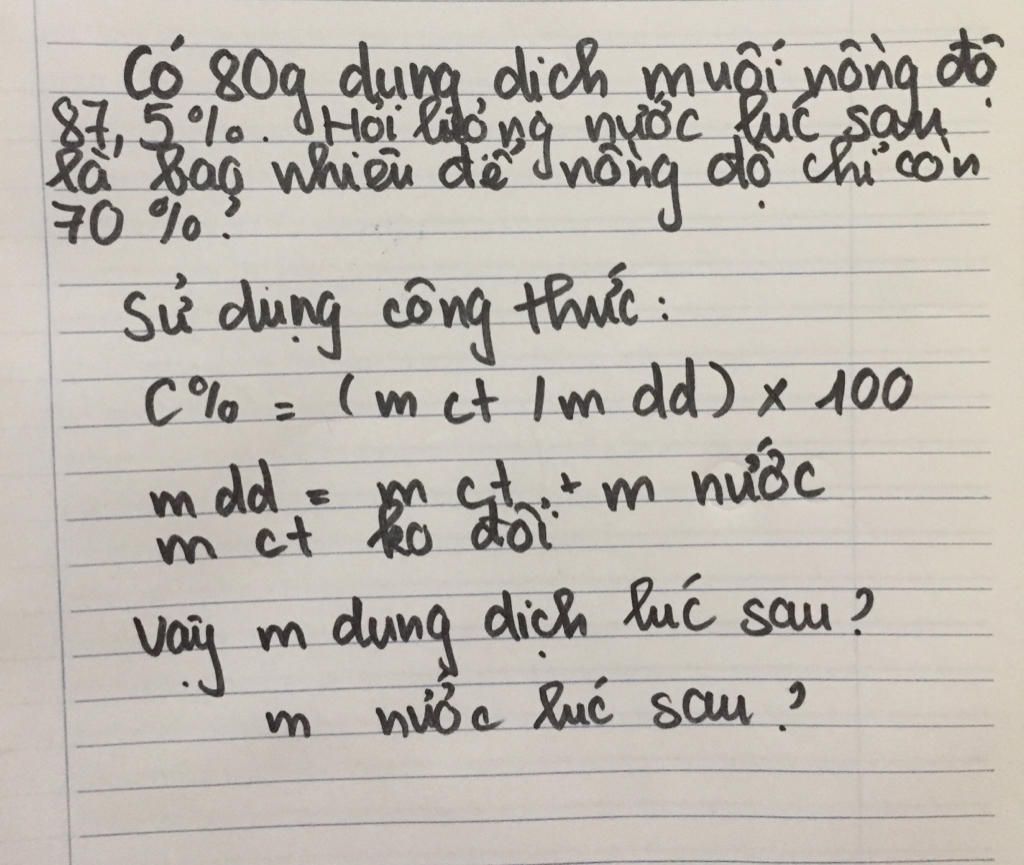 Có 80g dụng dịch muối nồng độ
87,5%. Hỏi lượng nước lúc sau
là bao nhiêu để nồng độ chỉ còn
70 %?
Sử dụng công thức:
C% = (m ct / m dd) x 100
m dd = m ct + m nước
m ct ko đổi
Vậy m dung dịch lúc sau?
m nước lúc sau?